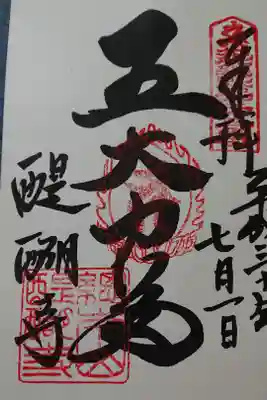 奉拝 平成三十年
七月一日
五大力尊
醍醐寺